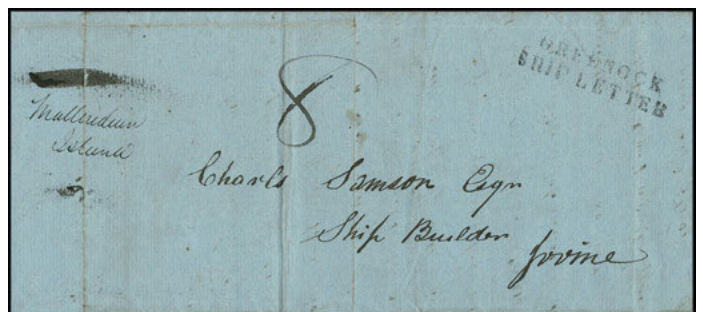 GREENOCK
SHIP LETTER
8
Island
Charls Samson Esqr
Ship Builder
Irvine